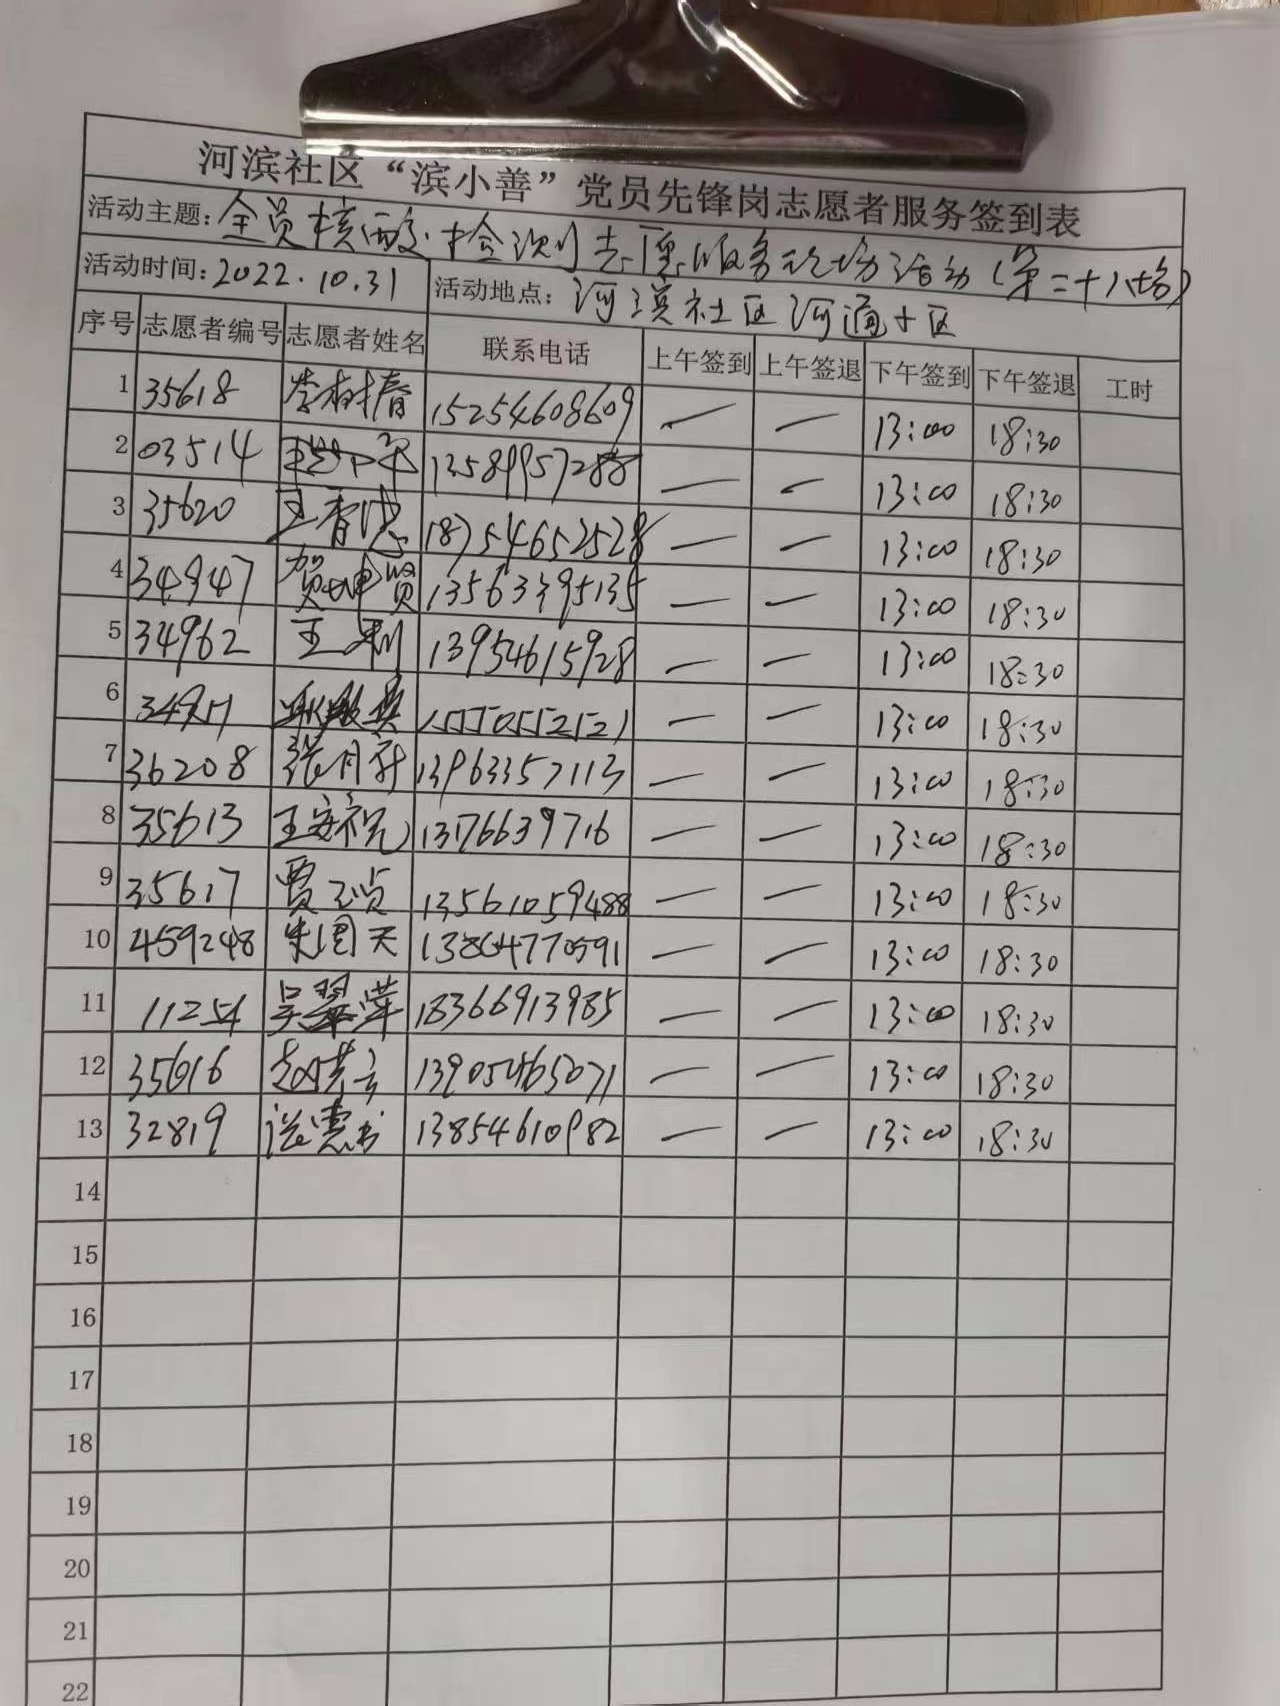 河滨社区“滨小善”党员先锋岗志愿者服务签到表
活动主题：全员核酸检测志愿服务现场活动（第二十八场）
活动时间：2022.10.31 活动地点：河滨社区河通小区
序号 志愿者编号 志愿者姓名 联系电话 上午签到 上午签退 下午签到 下午签退 工时
1 35618 李树春 15254608609 — — 13:00 18:30
2 03514 — — 13:00 18:30
3 35620 王香忠 18754652528 — — 13:00 18:30
4 34947 贺坤贤 13563395135 — — 13:00 18:30
5 34962 王利 13954615928 — — 13:00 18:30
6 15550552521 — — 13:00 18:30
7 36208 张月新 13963357113 — — 13:00 18:30
8 35613 王安祝 13176639716 — — 13:00 18:30
9 35617 贾 13561059488 — — 13:00 18:30
10 459248 朱国天 13864770591 — — 13:00 18:30
11 11254 吴翠萍 18366913985 — — 13:00 18:30
12 35616 13905465071 — — 13:00 18:30
13 32819 13854610982 — — 13:00 18:30
14
15
16
17
18
19
20
21
22